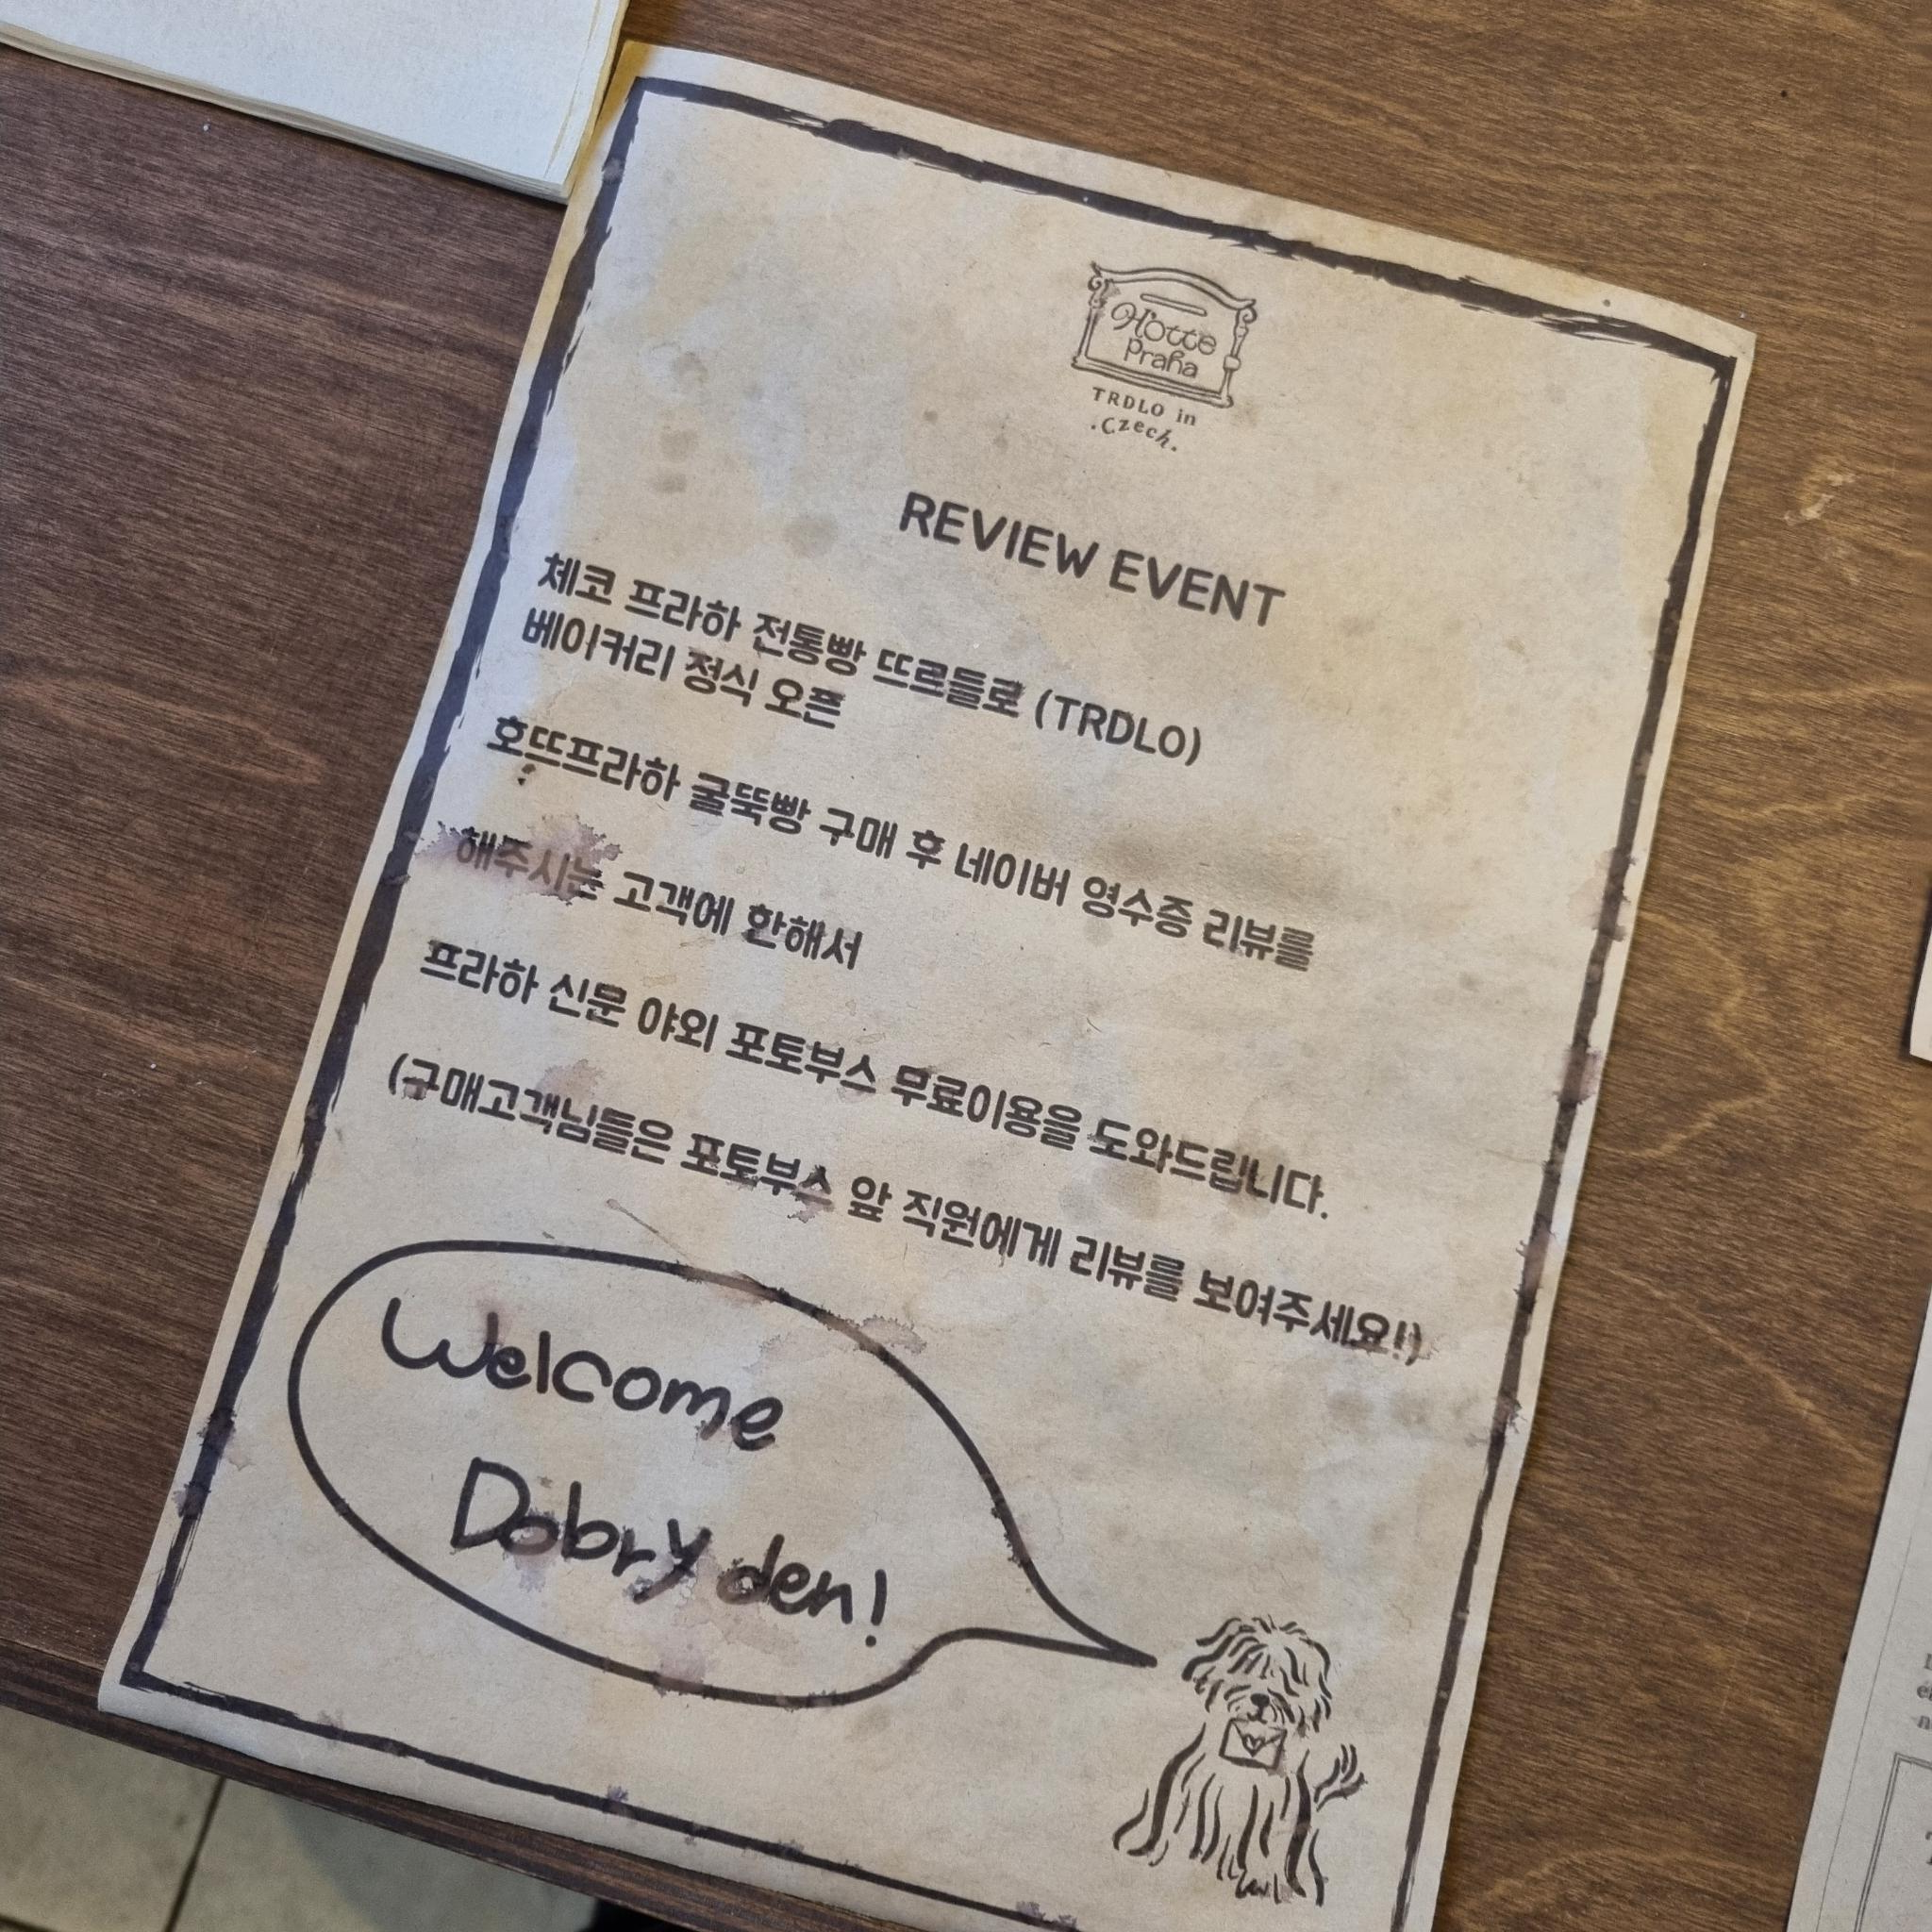 Hotte
Praha
TRDLO in
.Czech.
REVIEW EVENT
체코 프라하 전통빵 뜨르들로 (TRDLO)
베이커리 정식 오픈
호뜨프라하 굴뚝빵 구매 후 네이버 영수증 리뷰를
해주시는 고객에 한해서
프라하 신문 야외 포토부스 무료이용을 도와드립니다.
(구매고객님들은 포토부스 앞 직원에게 리뷰를 보여주세요!)
Welcome
Dobry den!